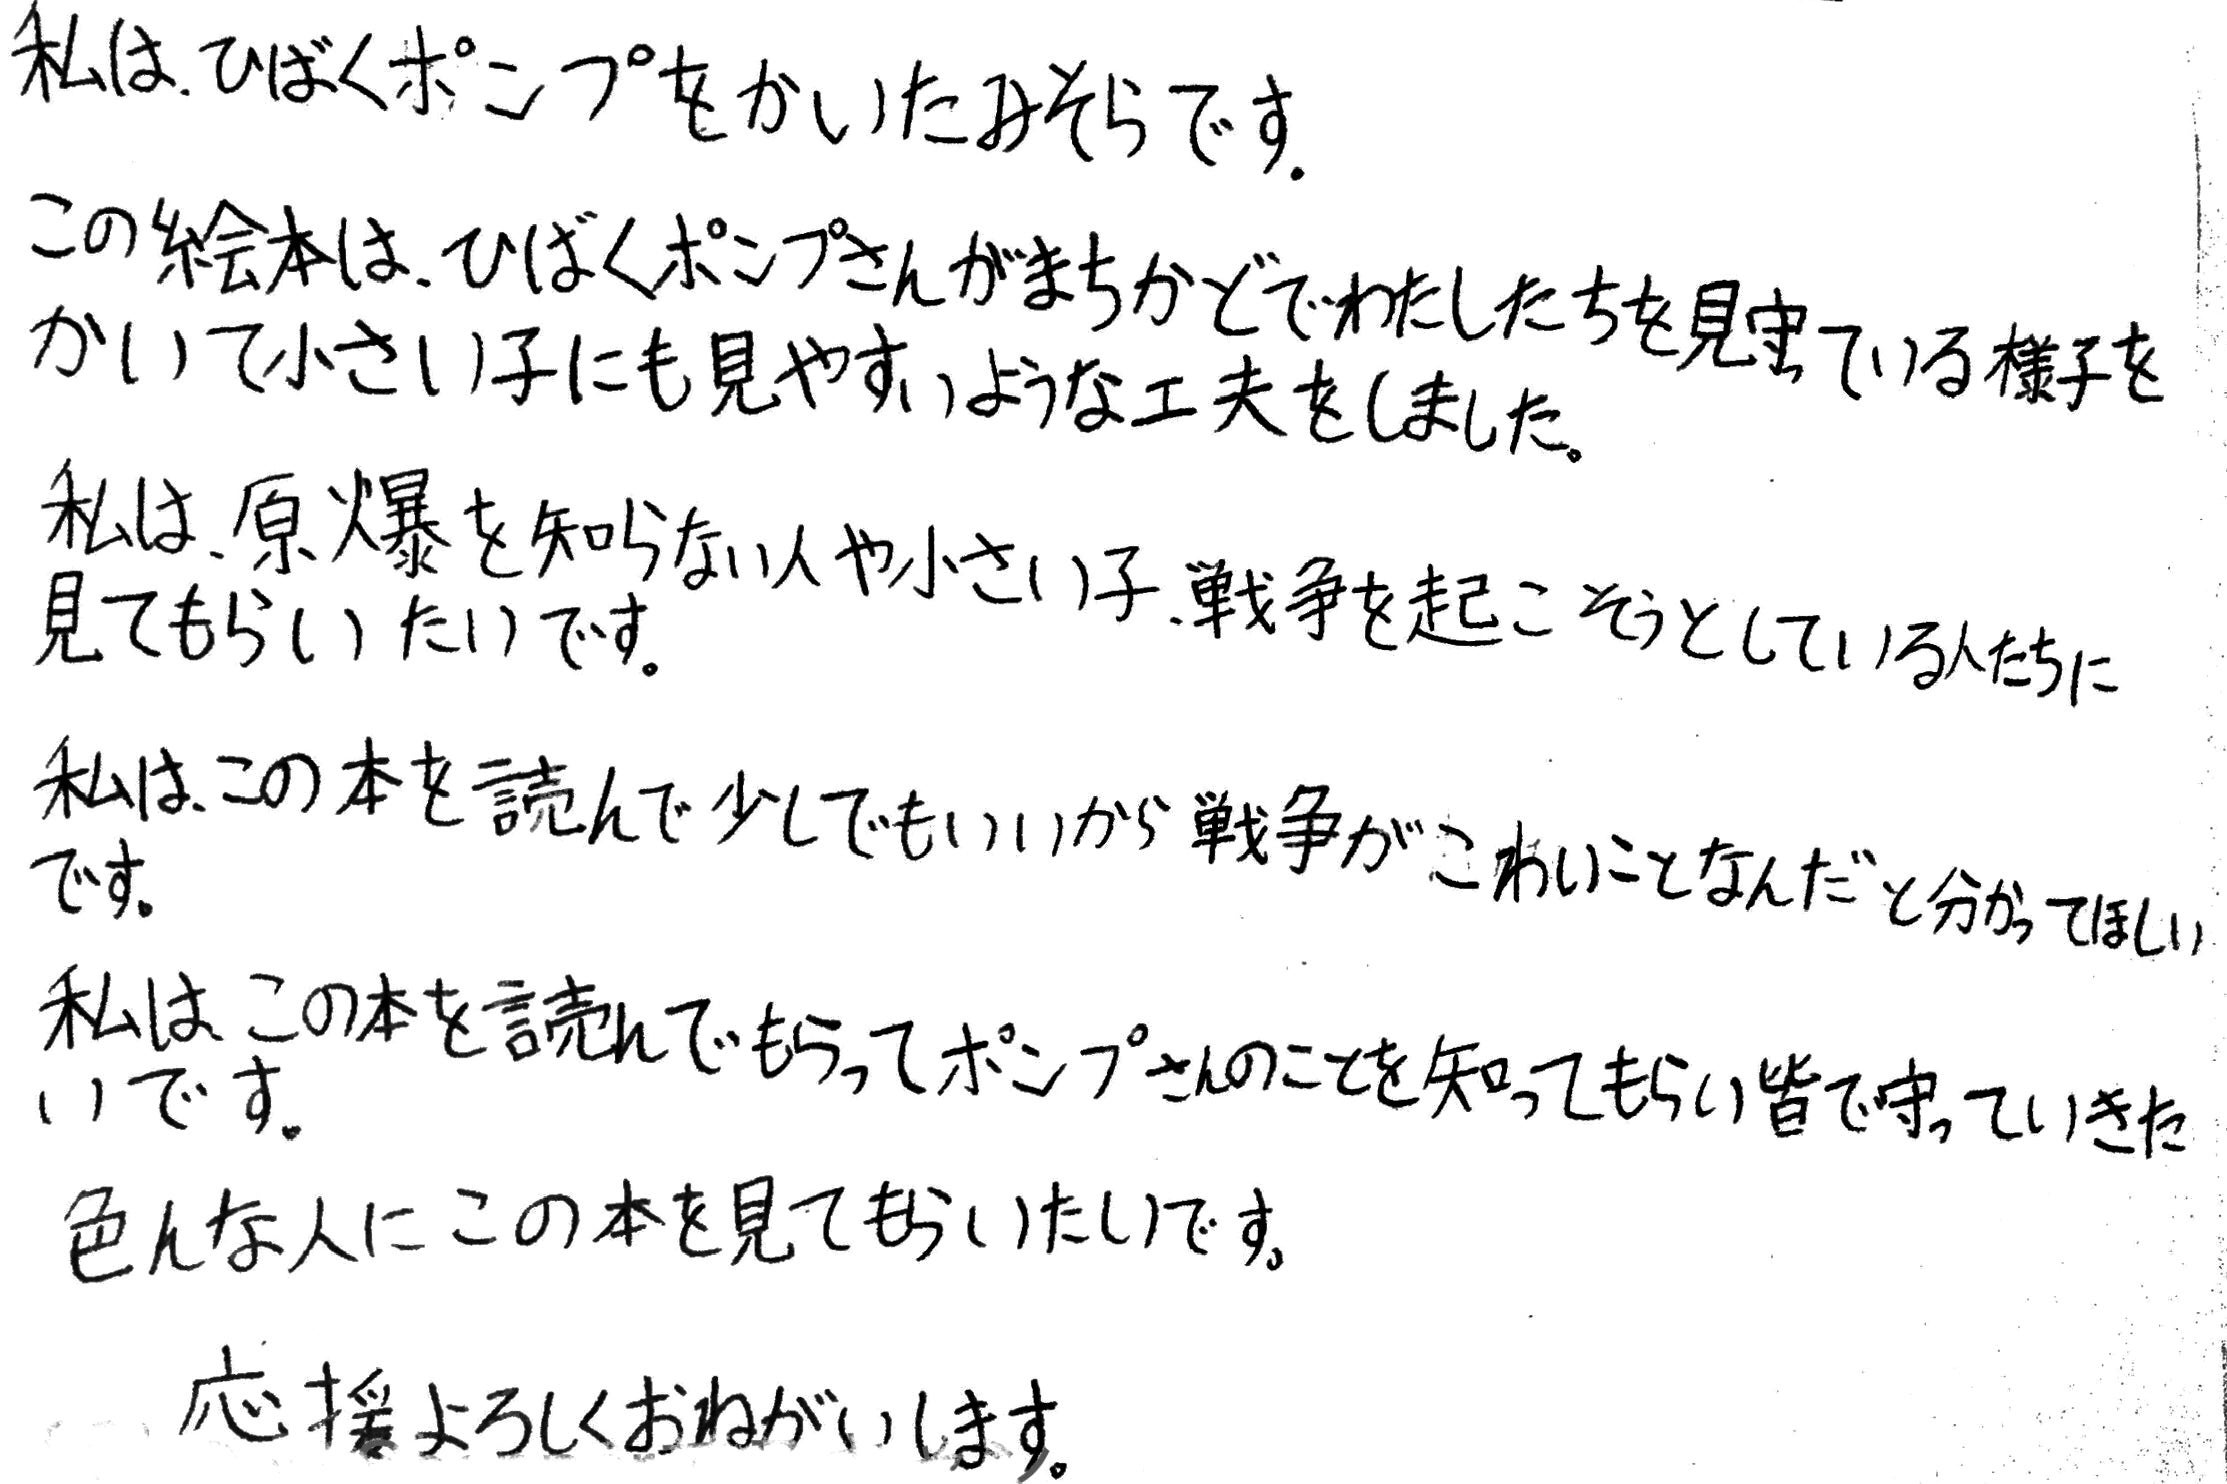 私は、ひばくポンプをかいたみそらです。
この絵本は、ひばくポンプさんがまちかどでわたしたちを見守っている様子を
かいて小さい子にも見やすいような工夫をしました。
私は、原爆を知らない人や小さい子、戦争を起こそうとしている人たちに
見てもらいたいです。
私は、この本を読んで少しでもいいから戦争がこわいことなんだと分かってほしい
です。
私は、この本を読んでもらってポンプさんのことを知ってもらい皆で守っていきた
いです。
色んな人にこの本を見てもらいたいです。
応援よろしくおねがいします。